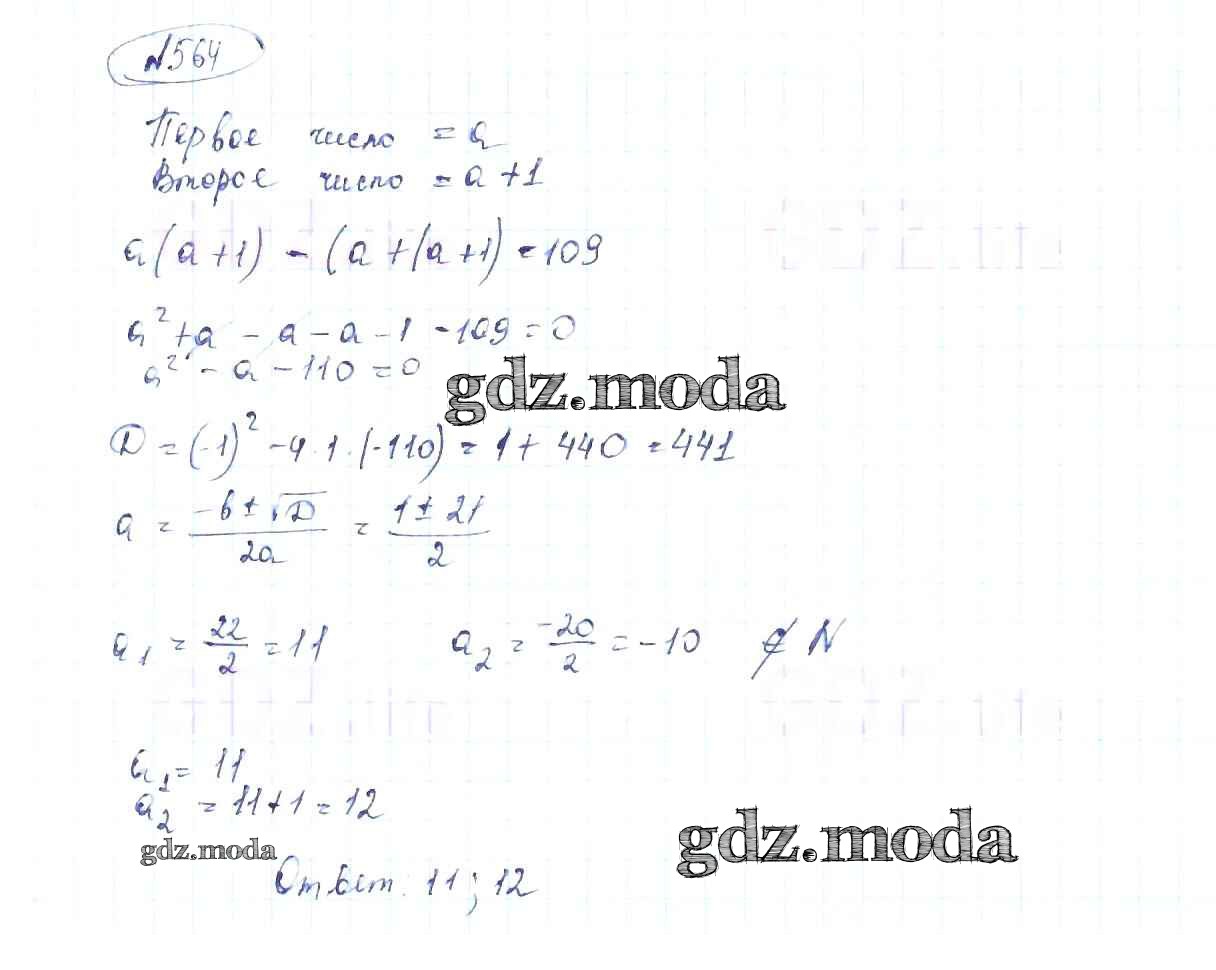 №564
Первое число = a
Второе число = a + 1
a(a+1) - (a+(a+1) = 109
a² + a - a - a - 1 - 109 = 0
a² - a - 110 = 0
gdz.moda
D = (-1)² - 4·1·(-110) = 1 + 440 = 441
a = (-b ± √D)/2a = (1 ± 21)/2
a₁ = 22/2 = 11 a₂ = -20/2 = -10 ∉ N
a₁ = 11
a₂ = 11+1 = 12
gdz.moda
gdz.moda
Ответ: 11; 12